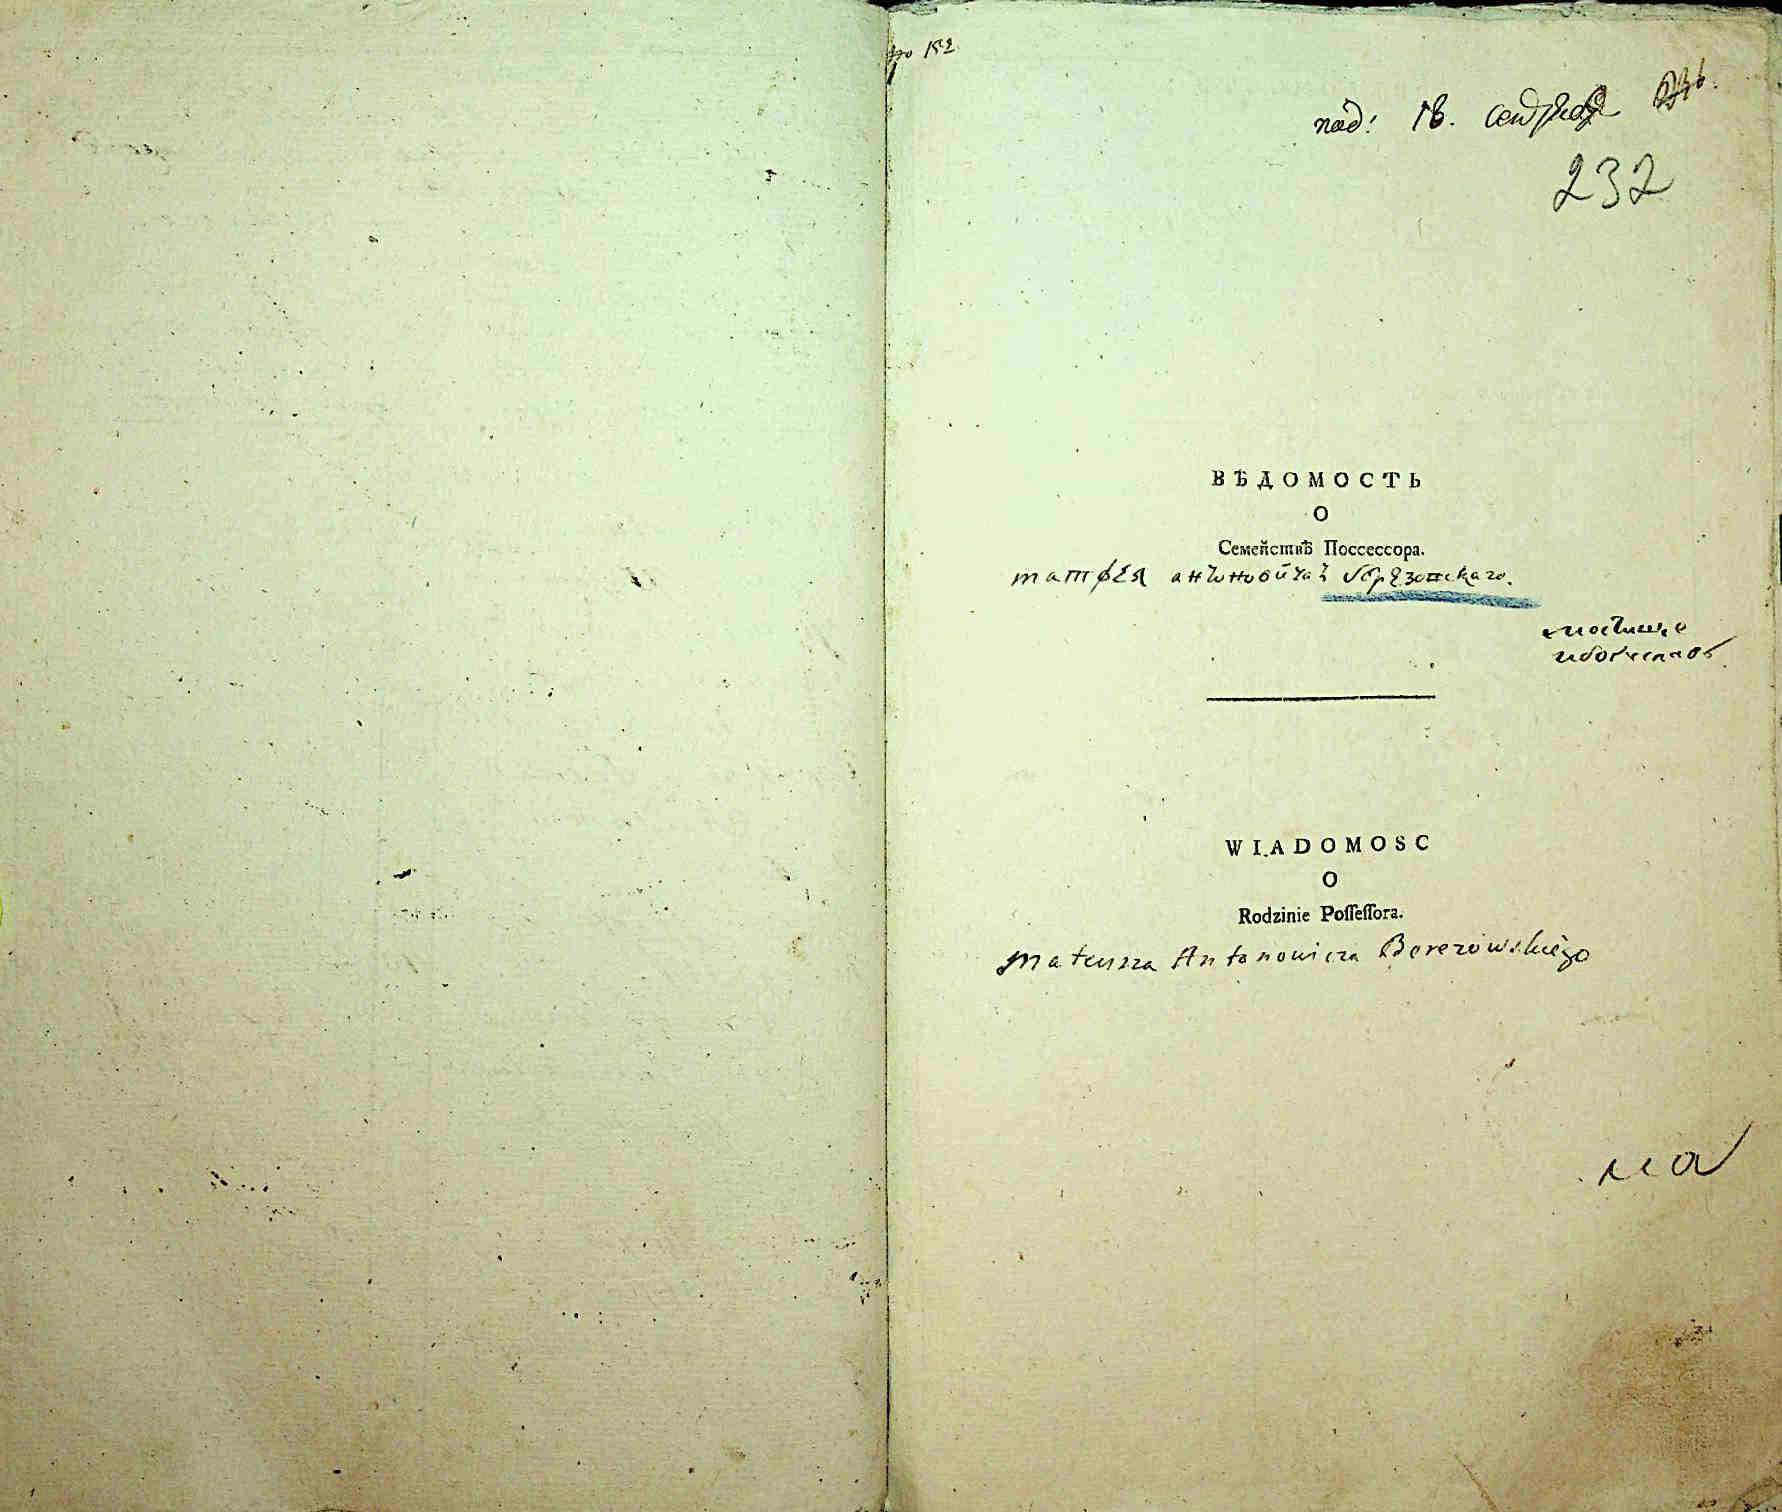 № 152
под: 18. сентября
232
ВѢДОМОСТЬ
О
Семействѣ Поссессора.
матфея антоновича березовскаго.
WIADOMOSC
O
Rodzinie Poſſeſſora.
Mateusza Antonowicza Berezowskiego